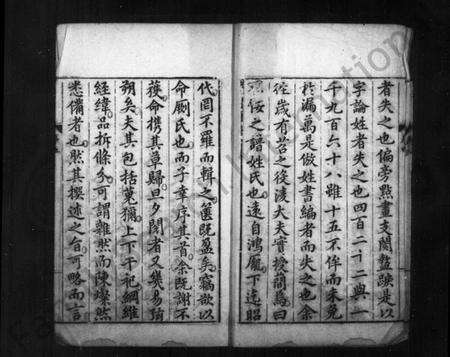 者失之也偏旁點畫支閡盭蹊是以
字論姓者失之也四百二十二與一
千九百六十八雖十五不侔而未免
於漏萬是倣姓書編者而失之也余
從歲有苕之後淩大夫實授簡焉曰
之譜姓氏也遠自鴻厖下逮昭
代罔不羅而輯之篋既盈矣竊欲以
命劂氏也而子幸序其首余既謝不
獲命攜其草歸旦夕閱者又幾易朔
朔矣夫其包括蒐獮上下千祀綱維
經緯品拆條分可謂雜然而陳燦然
悉備者也然其撰述之旨可略而言